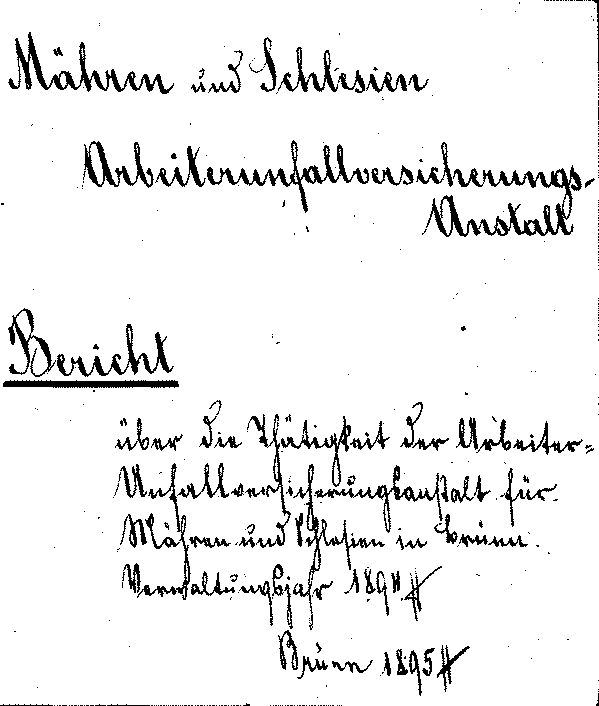 Mähren und Schlesien
Arbeiterunfallversicherungs-
Anstalt
Bericht
über die Thätigkeit der Arbeiter-
Unfallversicherungsanstalt für
Mähren und Schlesien in Brünn.
Verwaltungsjahr 1894
Brünn 1895